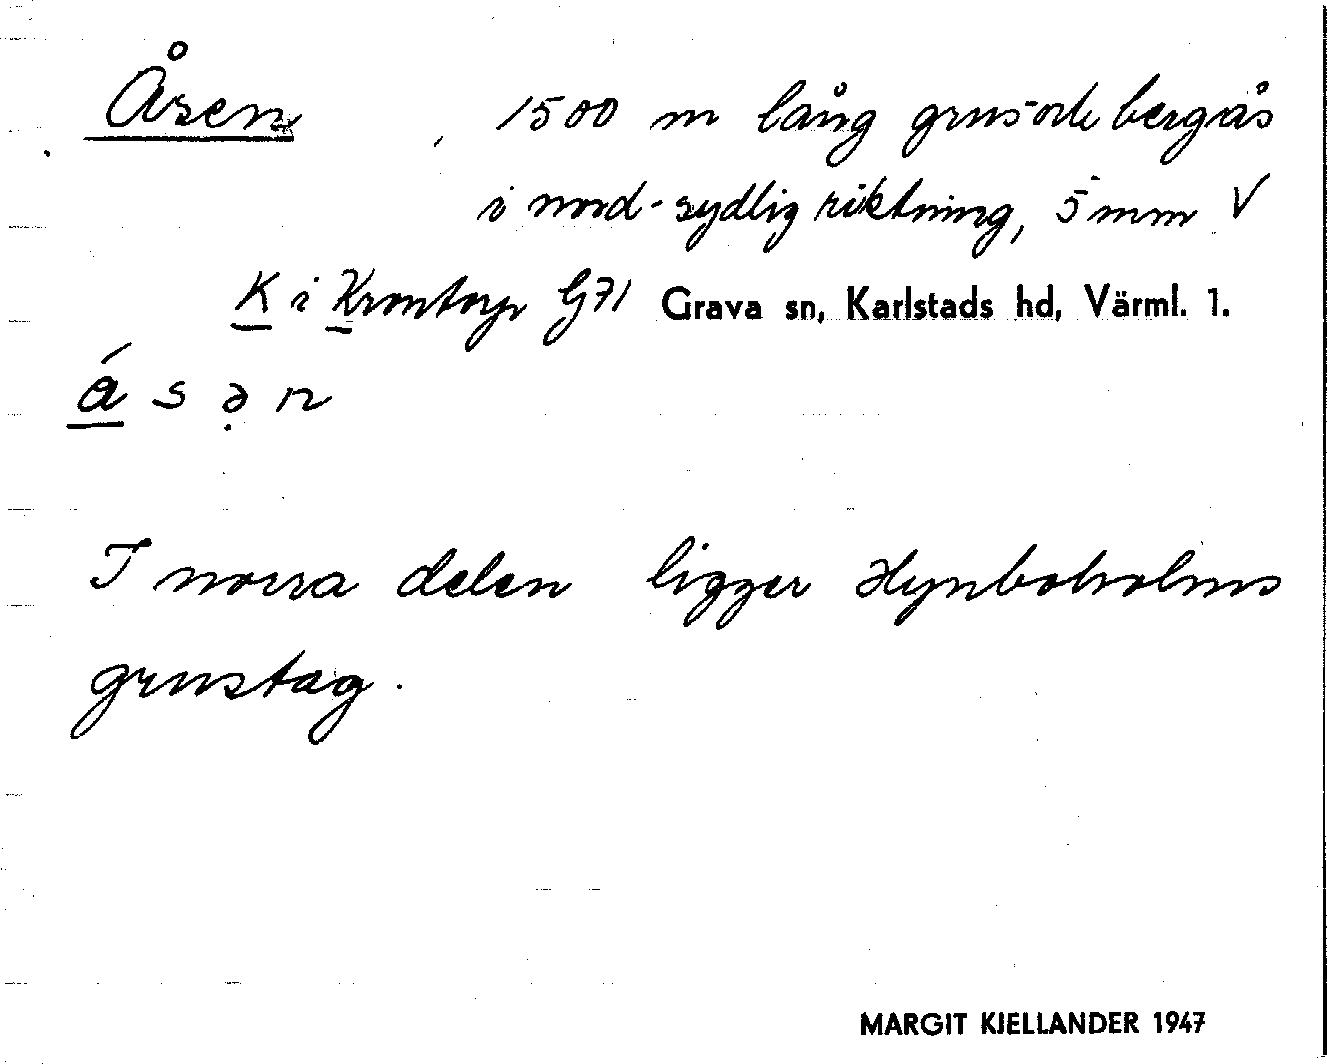 Åsen , 1500 m lång grus- och bergås
i nord-sydlig riktning, 5 mm V
K i Krontorp G71 Grava sn, Karlstads hd, Värml. l.
á s ə n
I norra delen ligger Hynboholms
grustag.
MARGIT KJELLANDER 1947